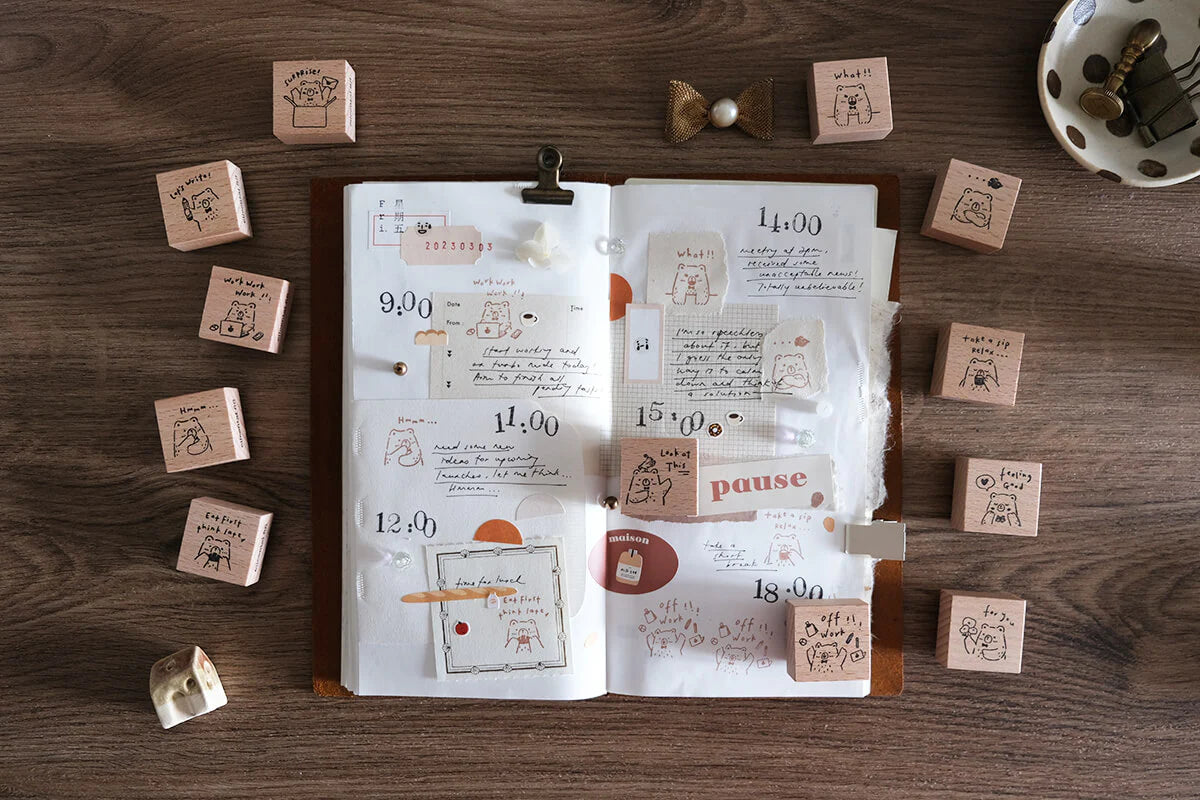 SURPRISE!
What!!
Let's write!
work work
work!!!
Hmm...
Eat First
think late,
take a sip
Relax...
feeling
Good
for you
Fri.
星期五
20230303
9:00
work work
work!!!
Date
Time
From
start working and
on turbo mode today!
Aim to finish all
pending tasks
11:00
Hmm...
need some new
ideas for upcoming
launches, let me think...
Hmmmm...
12:00
time for lunch
Eat First
think late,
14:00
meeting at 2pm,
received some
unacceptable news!
Totally unbelievable!
What!!
I'm so speechless
about it, but
I guess the only
way is to calm
down and think of
a solution
15:00
Look at
This
pause
maison
take a sip
Relax...
take a
short
break
18:00
off!!
Work
off!!
Work
off!!
Work